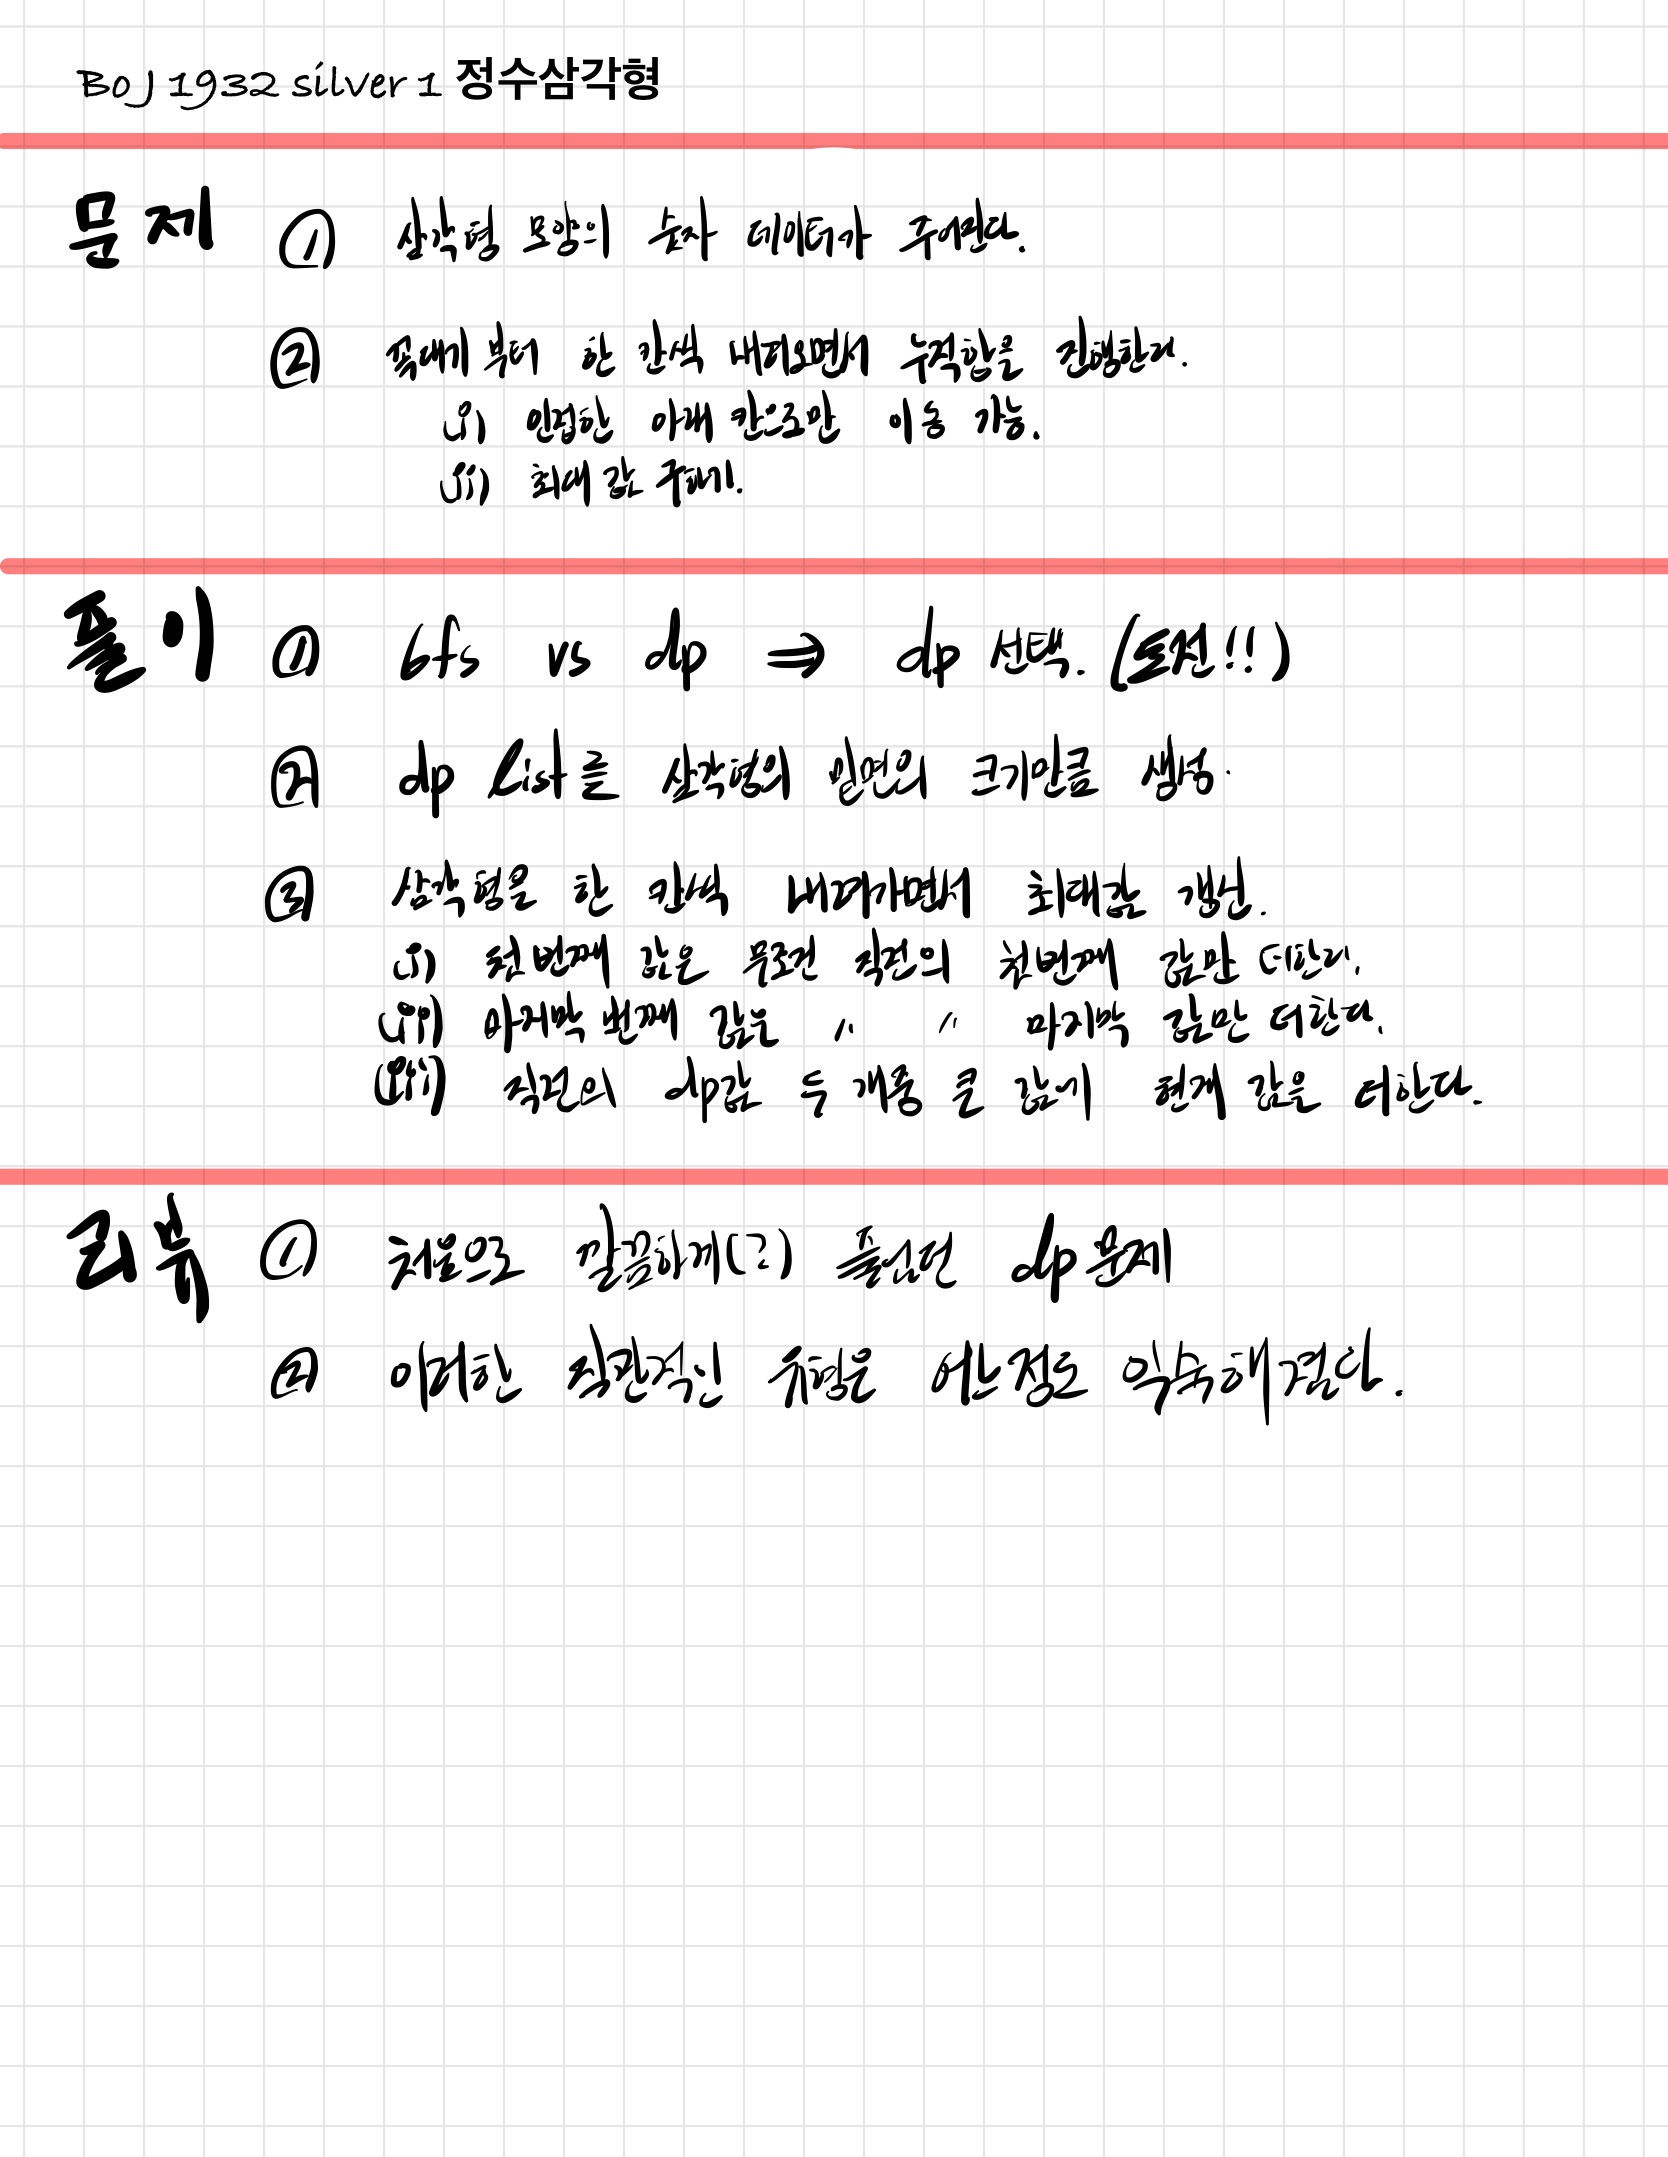 BOJ 1932 silver 1 정수삼각형
문제 ① 삼각형 모양의 숫자 데이터가 주어진다.
② 꼭대기 부터 한 칸씩 내려오면서 누적합을 진행한다.
(i) 인접한 아래 칸으로만 이동 가능.
(ii) 최대 값 구하기.
풀이 ① bfs vs dp ⇒ dp 선택. (도전!!)
② dp list를 삼각형의 밑면의 크기만큼 생성.
③ 삼각형을 한 칸씩 내려가면서 최대값 갱신.
(i) 첫 번째 값은 무조건 직전의 첫번째 값만 더한다.
(ii) 마지막 번째 값은 〃 〃 마지막 값만 더한다.
(iii) 직전의 dp값 두 개중 큰 값에 현재 값을 더한다.
리뷰 ① 처음으로 깔끔하게(?) 풀었던 dp 문제
② 이러한 직관적인 유형은 어느 정도 익숙해졌다.